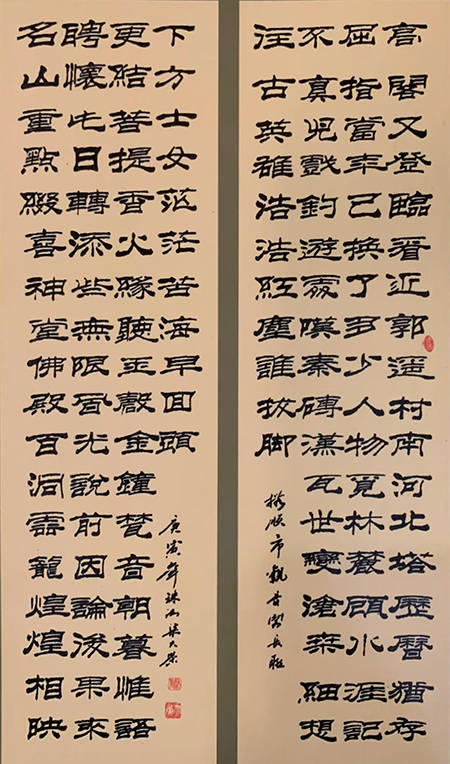 高閣又登臨看近郭遥村南河北塔歷曆猶存
屈指當年已換了多少人物覓林麓顧水涯記
不真児戲釣遊處嘆秦磚漢瓦世變滄桑細想
往古英雄浩浩紅塵誰拔脚
撫順市觀音閣長聯
名山重點綴喜神堂佛殿百洞靈龕煌煌相映
聘懷此日轉添些無限風光說前因論後果來
更結菩提香火緣聽玉磬金鐘梵音朝暮惟語
下方士女茫茫苦海早回頭
庚寅年